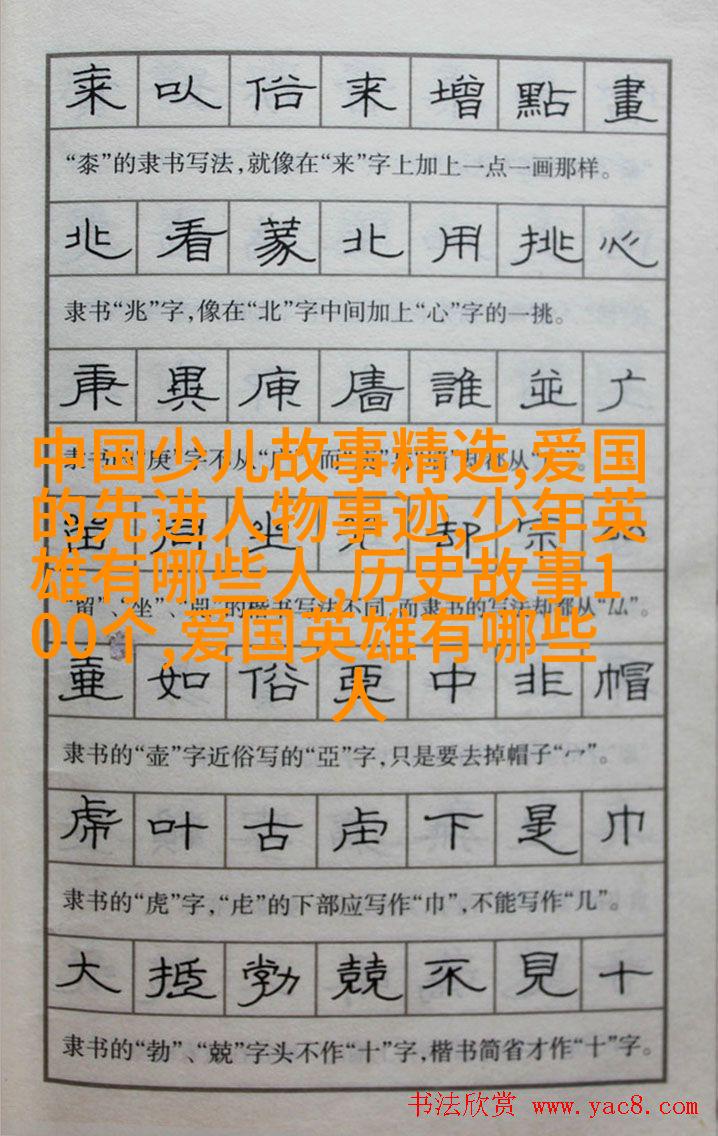 桼 㕥 俗 来 增 點 畫
“桼”的隶书写法,就像在“来”字上加上一点一画那样。
兆 看 蒙 北 用 挑 心
隶书“兆”字,像在“北”字中间加上“心”字的一挑。
庚 異 庫 廧 誰 並 广
隶书的“庚”字不从“广”,而
中国少儿故事精选,爱国
的先进人物事迹,少年英
雄有哪些人,历史故事1
00个,爱国英雄有哪些
人
坐 却 宗
“留”、“坐”、 的楷书写法不同,而隶书的写法却都从“厸”。
壷 如 俗 亞 中 非 帽
隶书的“壶”字近俗写的“亞”字,只是要去掉帽子“冖”。
虎 叶 古 虍 下 是 巾
隶书的“虎”字,“虍”的下部应写作“巾”,不能写作“几”。
大 抵 勃 兢 不 見 十
隶书的“勃”、“兢”字头不作“十”字,楷书简省才作“十”字。
书法欣赏 www.yac8.com